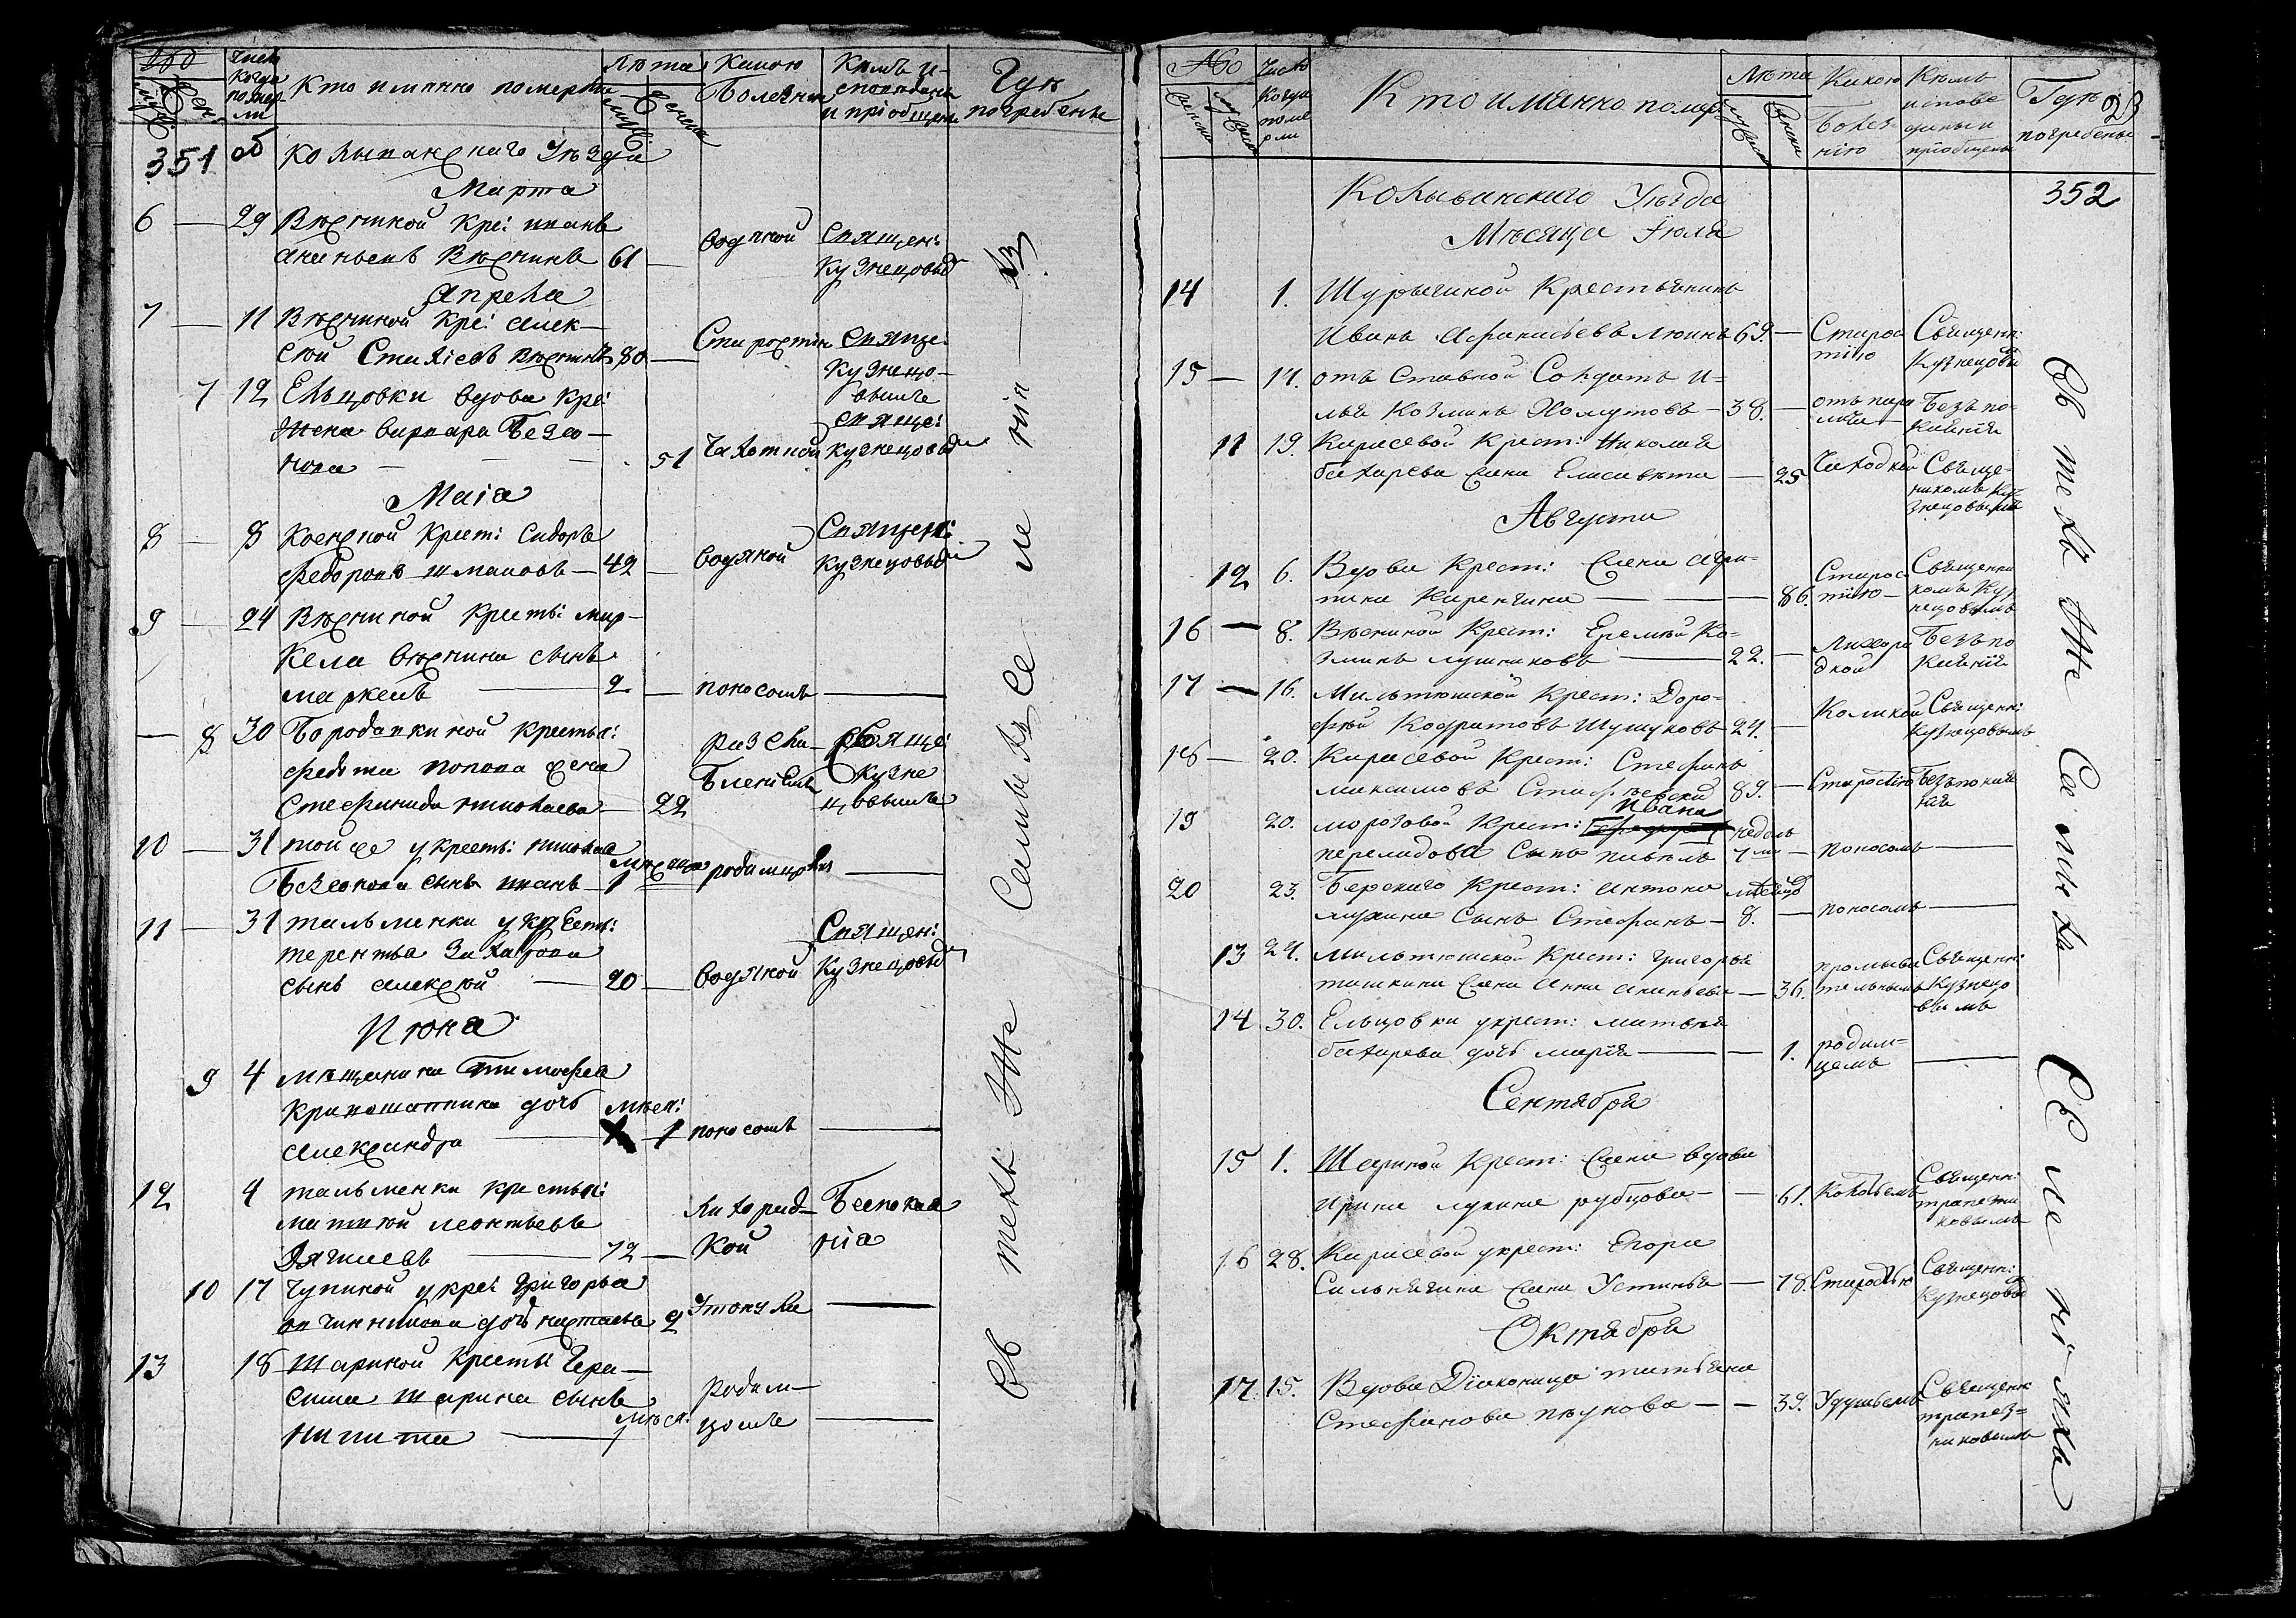 No
Муж: Жен:
Числ
Когда
помер
ли
Кто имянно померли
Лѣта
Муж: Женск
Какою
Болезнию
Кѣмъ и-
споведаны
и приобщены
Гдѣ
погребены
351 об
Колыванскаго Уѣзда
Марта
6 — 29 Вяткиной Кре: Иванъ
Ананьевъ Вяткинъ 61 — водяной Священ:
Кузнецовы
Апреля
7 — 11 Кре: Алек-
сей 80 — Старостию Свяще:
Кузнецо-
вымъ
7 12 Ельцовки вдова Кре:
Жена варвара Безсо-
нова — — 51 Чахоткой Свяще:
кузнецовы
Маія
8 — 8 Крест: Сидоръ
Федоровъ шмаковъ — 42 — водяной Священ:
Кузнецовы
9 — 24 Кресть: мар-
кела сынъ
маркелъ — 2 — поносомъ —
— 8 30 Бородавкиной Кресть:
Федота попова жена
Стефанида николаева — 22 Свяще:
Кузне
цовымъ
10 — 31 той же у кресть: николая
Безсонова сынъ иванъ — месяцъ 1 родимцомъ —
11 — 31 тальменки у кресть:
терентья Захарова
сынъ алексей — 20 — водяной Священ:
Кузнецовы
Июня
9 4 мѣщанина Тимофея
дочь
Александра — мѣся: 1 поносомъ —
12 4 тальменки кресть:
матвей леонтьевъ
Вяткинъ — 72 — лихорад-
кой Беспокая
нія
10 17 Чупиной у кре: Григорья
овчинникова дочь настасья 2 Утонула —
13 18 Шариной Кресть: Гера-
сима шарина сынъ
никита — мѣся: 1 Родим-
цомъ —
Въ техъ Же Самыхъ Се-ле-нія-хъ
No
женск мужеск
Число
Когда
поме
рли
Кто имянно помер
Лѣта
мужеск женск
Какою
Болез
нію
Кѣмъ
испове
даны и
приобщены
Гдѣ
погребены
23
352
Колыванскаго Уѣзда
Мѣсяца Іюля
14 1. Шурыгиной Крестьянинъ
Иванъ Афанасьевъ 69. — Старос
тію Священ:
Кузнецовы
15 — 11. отъ Ставной Солдатъ И-
лья Козминъ Хомутовъ — 38. — отъ пара
лича Безъ по-
каянія
11 19. Карасевой Крест: Николая
бахарева жена Елисавета — 25 Чахоткой Свяще-
никомъ Ку-
знецовымъ
Августа
12 6. Вдова Крест: жена Агри-
пина — 86. Старос
тію — Священни
комъ Куз
нецовымъ
16 — 8. Крест: Еремѣй Ко-
зминъ лушниковъ — 22. — Лихора
дкой Безъ по
каянія
17 — 16. Мильтюшской Крест: Доро-
фѣй Кодратовъ Шушуковъ 24. — Коликой Священ:
Кузнецовымъ
18 — 20. Карасевой Крест: Стефанъ
максимовъ 89. — Старостію Безъ покая
нія
19 20. морозовой Крест: Ивана
перелидова Сынъ павелъ недель
7 — поносомъ —
20 23. Берскаго Крест: Антона
Сынъ Стефанъ — мѣсяцъ
8. — поносомъ —
13 24. Мильтюшской Крест: Григорья
жена Анна Ананьева — 36. Священ:
Кузнецо
вымъ
14 30. Ельцовки укрест: матвѣя
бахарева дочь марія — — 1. родим-
цемъ —
Сентября
15 1. Шариной Крест: жена вдова
Ирина лукина рубцова — — 61. Колотьемъ Священ:
трапезни
ковымъ
16 28. Карасевой укрест: Егора
жена Устинья — 78. Старостью Священ:
Кузнецовы
Октября
17 15. Вдова Діаконица татьяна
Стефанова пѣунова — — 39. Удушьемъ Священ
трапез=
никовымъ
Въ техъ Же Самыхъ СЕ-ле-ні-яхъ